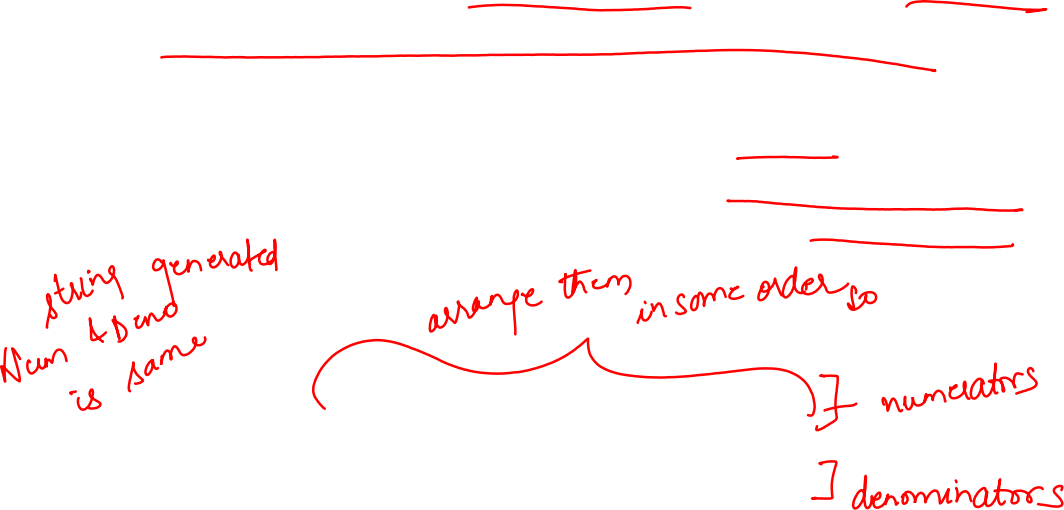 string generated
Num & Deno
is same
arrange them in some order so
numerators
denominators